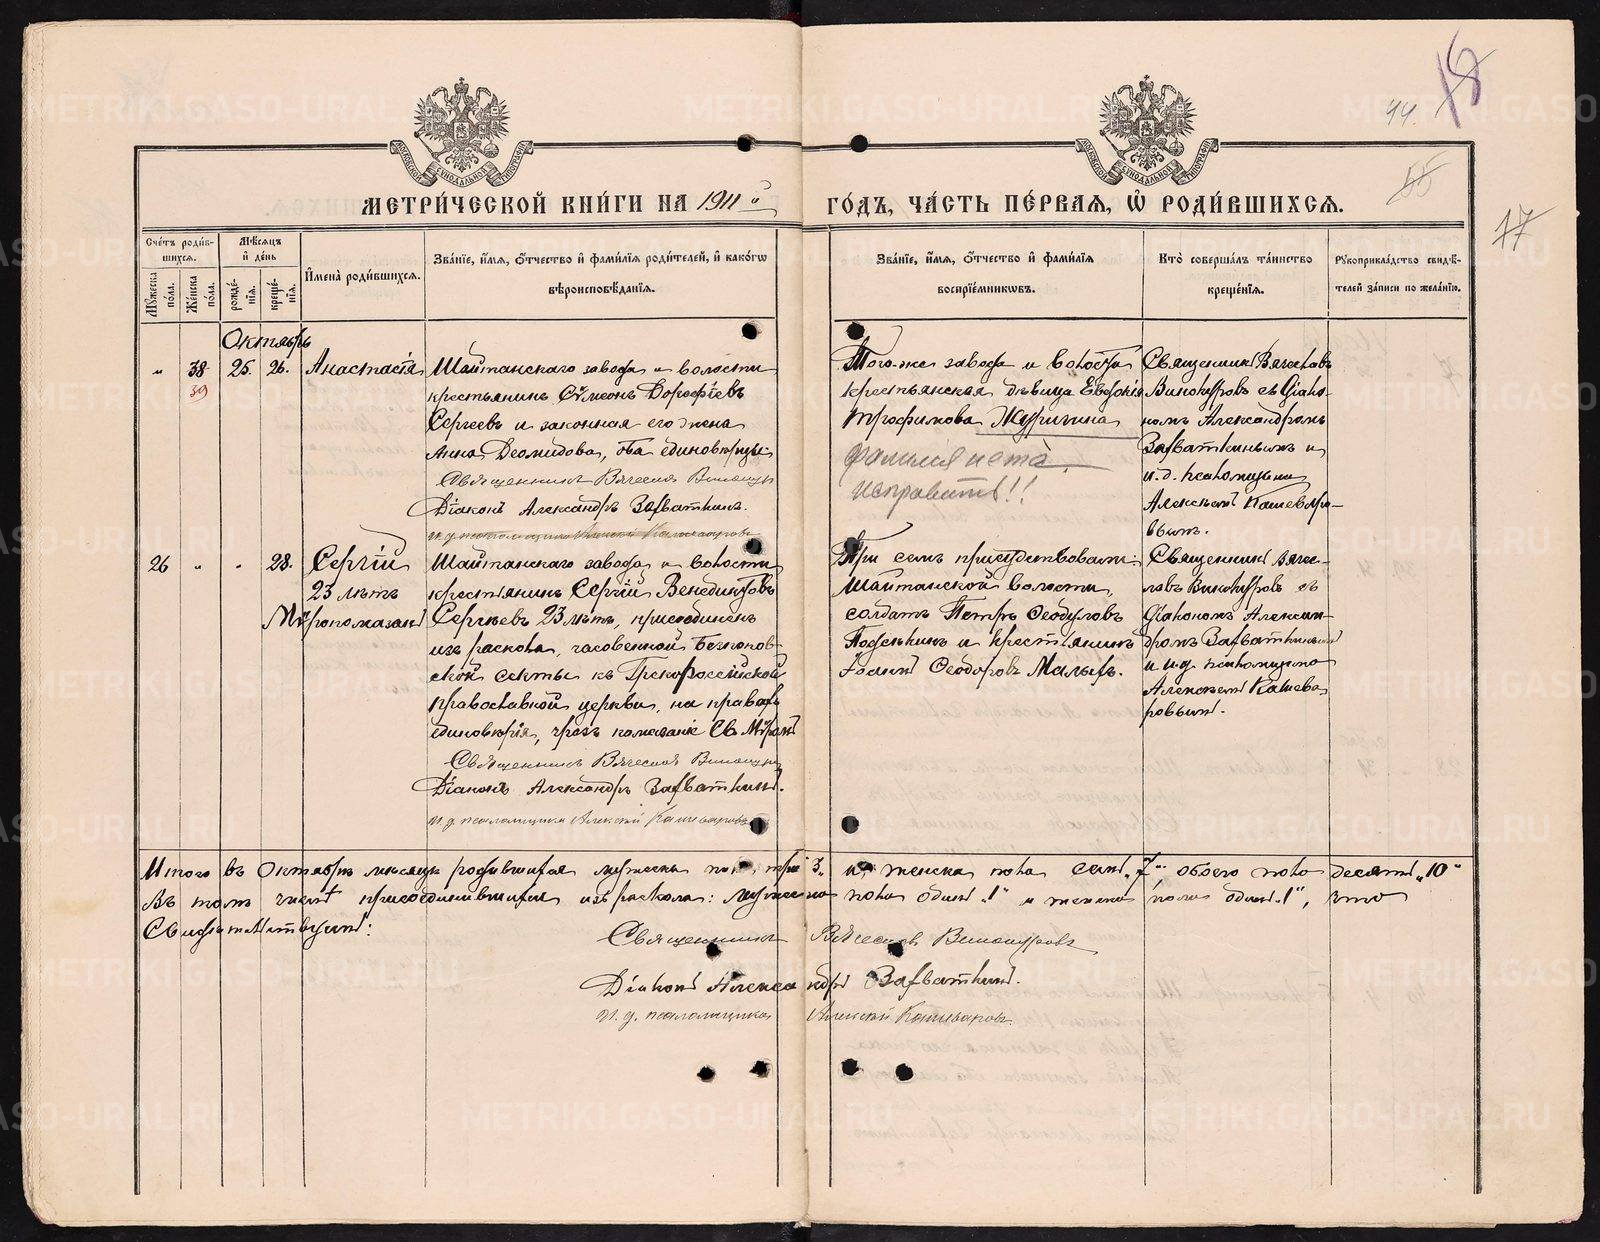 44. 18
55
17
МЕТРИ́ЧЕСКОЙ КНИ́ГИ НА 1911 й
ГО́ДЪ, ЧА́СТЬ ПЕ́РВАЯ, Ѡ РОДИ́ВШИХСѦ.
Сче́тъ роди́в-
шихсѧ.
Мꙋжеска по́ла.
Же́нска по́ла.
Мѣ́сѧцъ
и҆ де́нь
рожде́-
нїѧ.
креще́-
нїѧ.
И҆мена̀ роди́вшихсѧ.
Зва́нїе, и҆́мѧ, ѻ҆́тчество и҆ фами́лїѧ роди́телей, и҆ како́гѡ
вѣроисповѣ́данїѧ.
Зва́нїе, и҆́мѧ, ѻ҆́тчество и҆ фами́лїѧ
воспрїе́мникѡвъ.
Кто̀ соверша́лъ та́инство
креще́нїѧ.
Рꙋкоприкла́дство свидѣ́-
телей за́писи по жела́нїю.
Октябрь
„ 38 25. 26. Анастасія
39
Шайтанскаго завода и волости
крестьянинъ Сѵмеонъ Дорофѣевъ
Сергеевъ и законная его жена
Анна Деомидова, оба единовѣрцы.
Священникъ Вячеславъ Винокуровъ
Діаконъ Александръ Завваткинъ.
и. д. псаломщика Алексѣй Кашеваровъ
Того-же завода и волости
крестьянская дѣвица Евдокія
Трофимова Журигина
фамилія нетъ.
исправить!!
Священникъ Вячеславъ
Винокуровъ съ Діако-
номъ Александромъ
Завваткинымъ и
и. д. псаломщика
Алексѣемъ Кашевар-
вымъ.
26 „ „ 28. Сергій
23 лѣтъ
Мѵропомазанъ
Шайтанскаго завода и волости
крестьянинъ Сергій Венедиктовъ
Сергѣевъ 23 лѣтъ, присоединенъ
изъ раскола, часовенной Безпопов-
ской секты къ Грекороссійской
православной церкви, на правахъ
единовѣрія, чрезъ помазаніе Св. Мѵромъ
Священникъ Вячеславъ Винокуровъ
Діаконъ Александръ Завваткинъ.
и. д. псаломщика Алексѣй Кашеваровъ
При семъ присутствовали:
Шайтанской волости,
солдатъ Петръ Ѳеодуловъ
и крестьянинъ
Іоаннъ Ѳеодоровъ
Священникъ Вяче-
славъ Винокуровъ съ
Діакономъ Алексан-
дромъ Завваткинымъ
и и. д. псаломщика
Алексѣемъ Кашева-
ровымъ.
Итого въ Октябрѣ мѣсяцѣ родившихся мужеска пола, три 3. и женска пола семь „7“ обоего пола десять „10“
Въ томъ числѣ присоединившихся изъ раскола: мужеска пола одинъ „1“ и женска пола одинъ „1“, что
Свидѣтельствуемъ:
Священникъ Вячеславъ Винокуровъ
Діаконъ Александръ Завваткинъ.
И. д. псаломщика Алексѣй Кашеваровъ.
METRIKI.GASO-URAL.RU